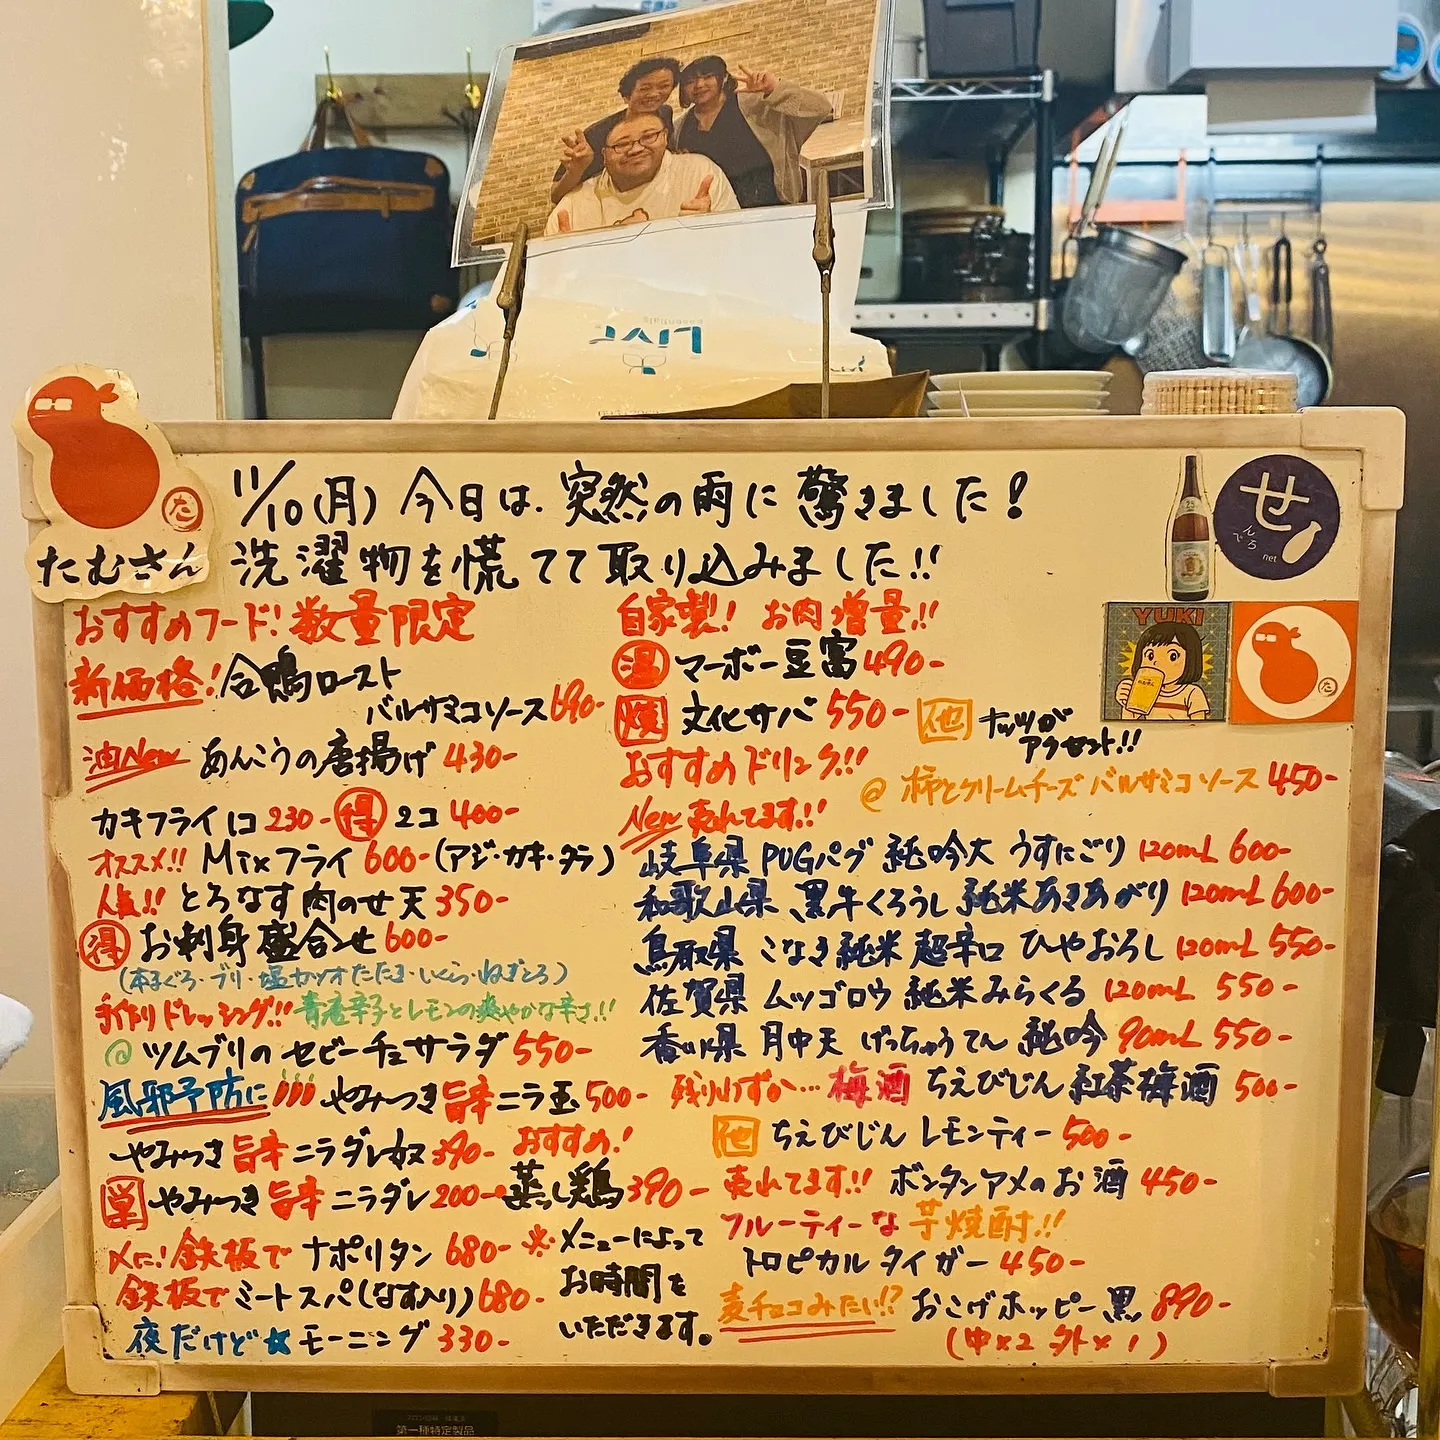 11/10(月) 今日は、突然の雨に驚きました!
洗濯物を慌てて取り込みました!!
たむさん
た
せ
んでろ
net
YUKI
た
おすすめフード! 数量限定
新価格! 合鴨ロースト
バルサミコソース 690-
油New あんこうの唐揚げ 430-
カキフライ 1コ 230- 得 2コ 400-
オススメ!! Mixフライ 600- (アジ・カキ・タラ)
人気!! とろなす肉のせ天 350-
得 お刺身盛合わせ 600-
(本まぐろ・ブリ・塩カツオたたき・いくら・ねぎとろ)
手作りドレッシング!! 青唐辛子とレモンの爽やかな辛さ!!
@ ツムブリのセビーチェサラダ 550-
風邪予防に やみつき旨辛ニラ玉 500-
やみつき旨辛ニラダレ奴 390-
単 やみつき旨辛ニラダレ 200-
おすすめ!
蒸し鶏 390-
〆に! 鉄板で ナポリタン 680-
鉄板で ミートスパ(なす入り) 680-
夜だけど★モーニング 330-
※メニューによって
お時間を
いただきます。
自家製! お肉増量!!
温 マーボー豆富 490-
焼 文化サバ 550-
他 ナッツが
アクセント!!
@ 柿とクリームチーズ バルサミコソース 450-
おすすめドリンク!!
New 売れてます!!
岐阜県 PUGパグ 純吟大 うすにごり 120mL 600-
和歌山県 黒牛くろうし 純米あきあがり 120mL 600-
鳥取県 こなき純米 超辛口 ひやおろし 120mL 550-
佐賀県 ムツゴロウ 純米みらくる 120mL 550-
香川県 月中天 げっちゅうてん 純吟 90mL 550-
残りわずか… 梅酒 ちえびじん 紅茶梅酒 500-
他 ちえびじん レモンティー 500-
売れてます!! ボンタンアメのお酒 450-
フルーティーな芋焼酎!!
トロピカルタイガー 450-
麦チョコみたい!? おこげホッピー黒 890-
(中×2 外×1)
第一種特定製品